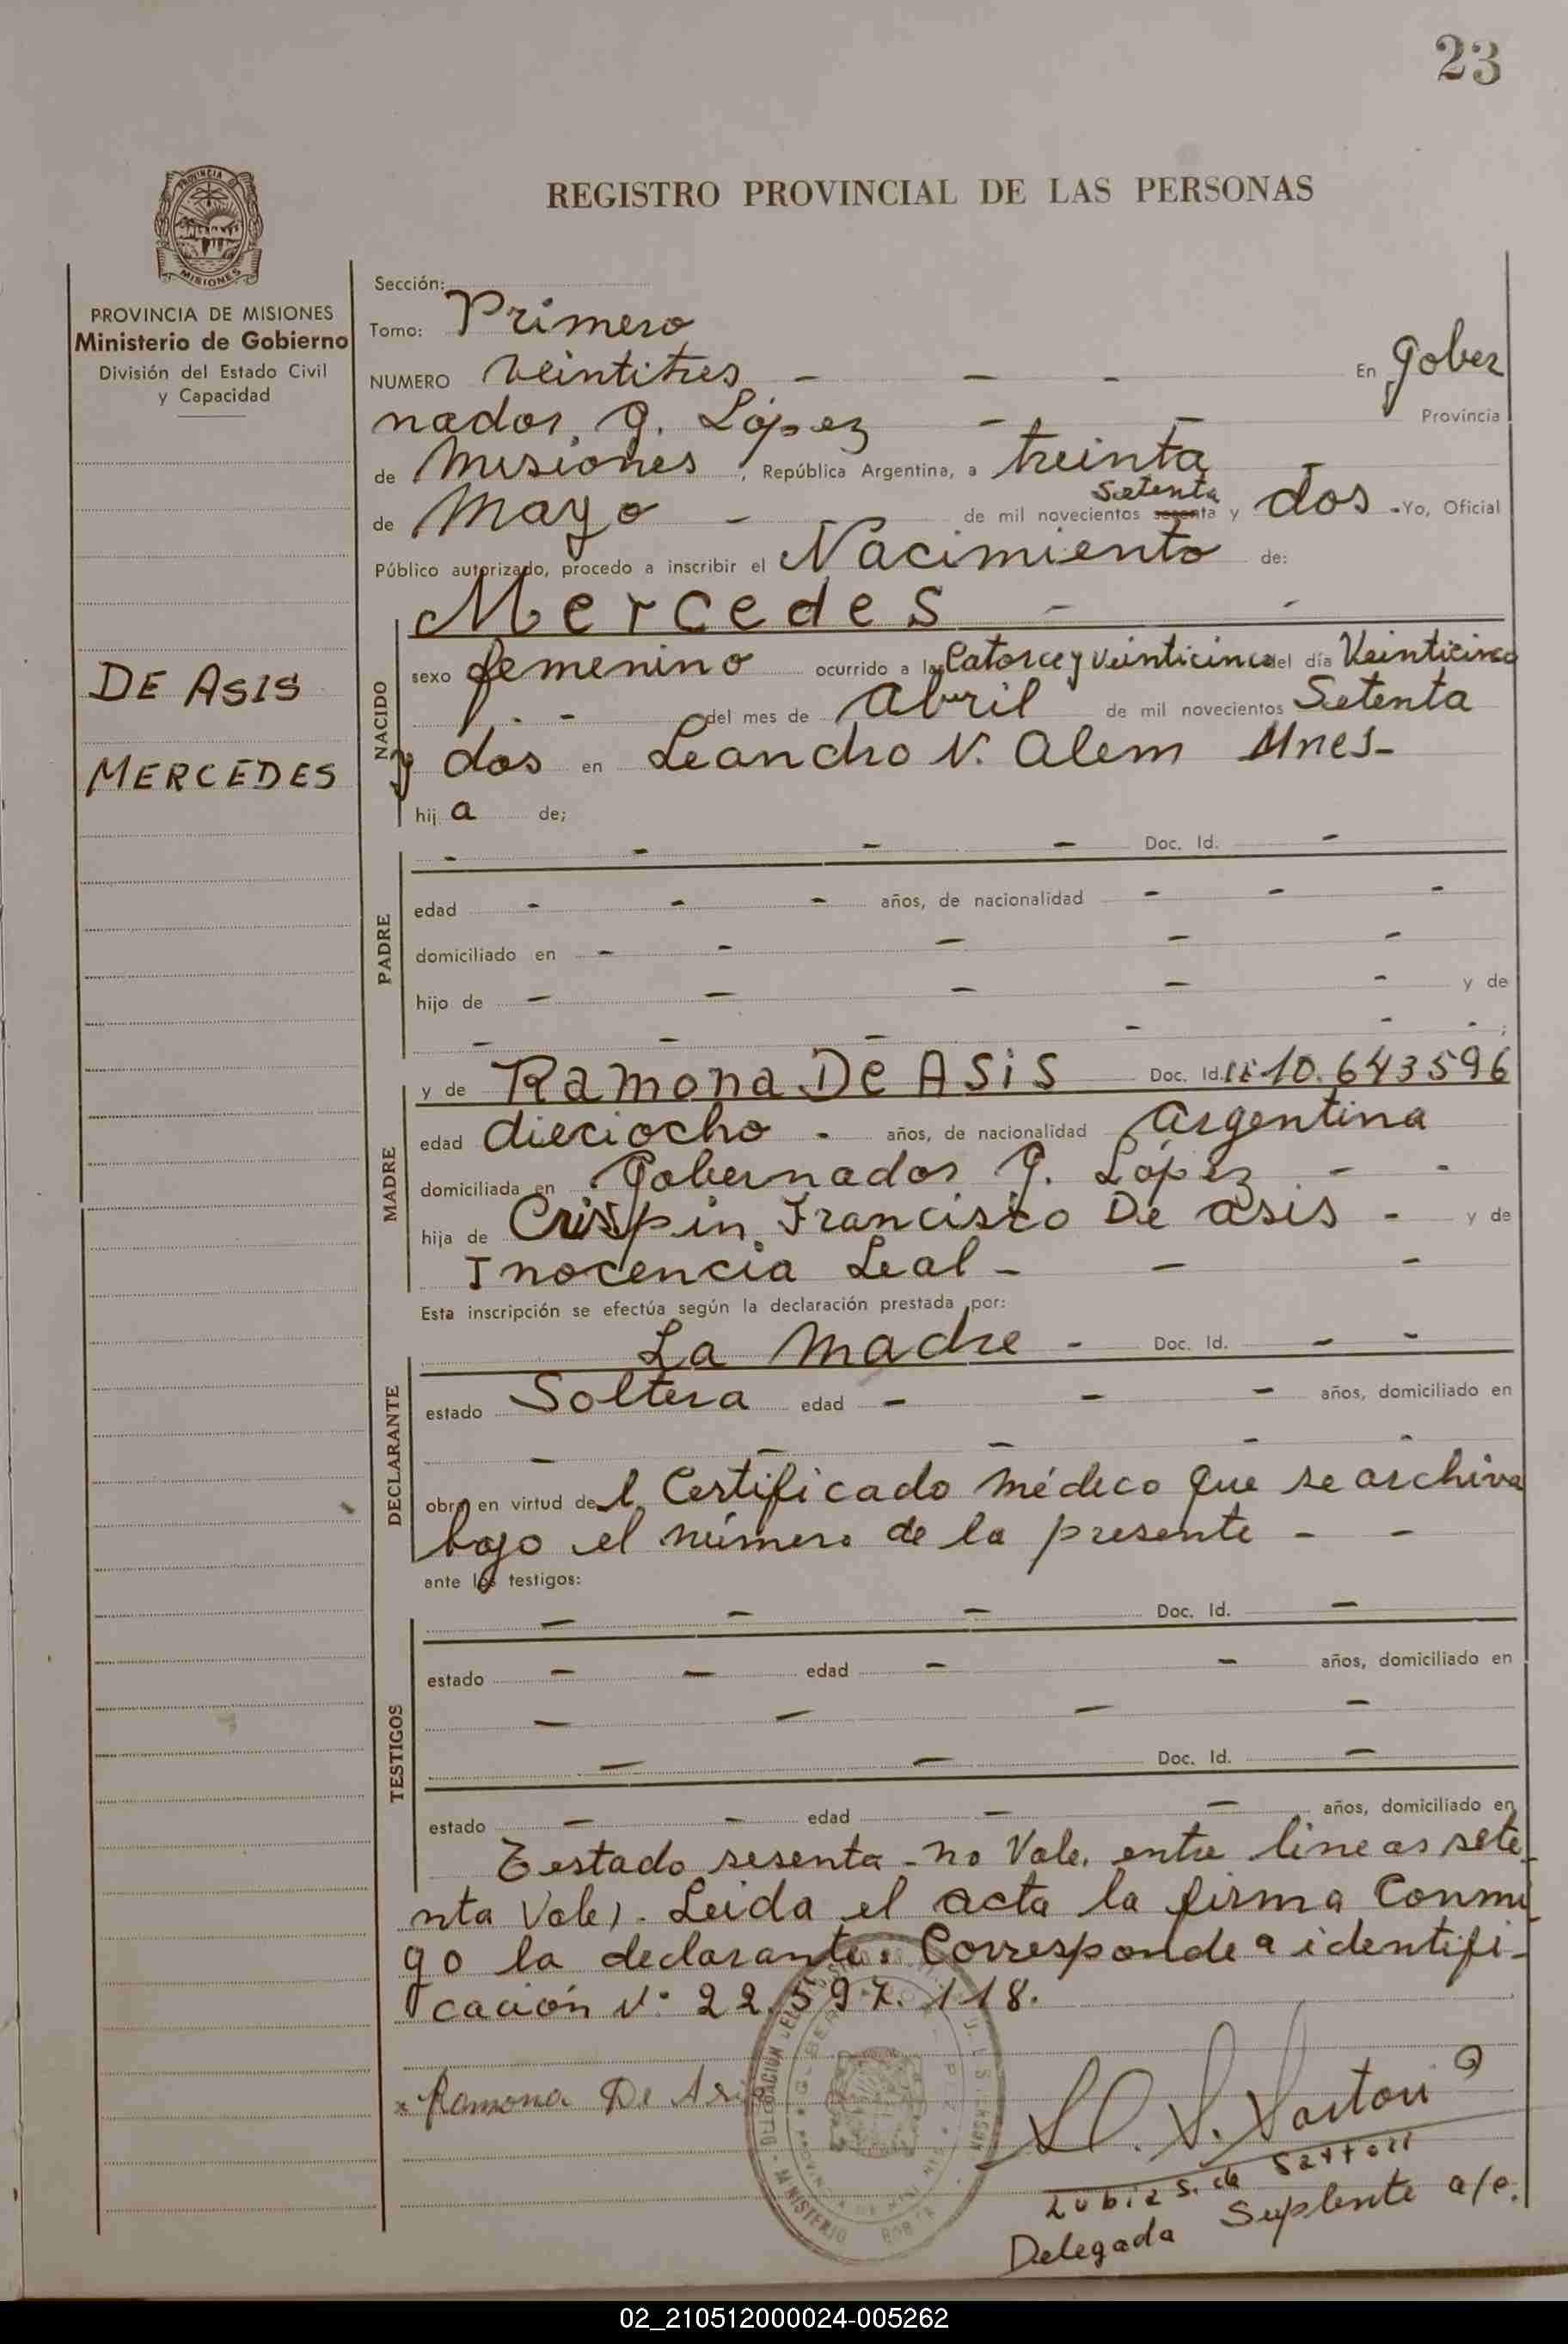 23
REGISTRO PROVINCIAL DE LAS PERSONAS
PROVINCIA DE
MISIONES
PROVINCIA DE MISIONES
Ministerio de Gobierno
División del Estado Civil
y Capacidad
DE ASIS
MERCEDES
Sección:
Tomo: Primero
NUMERO veintitres - - - En Gober
nador G. López - - Provincia
de Misiones, República Argentina, a treinta -
setenta
de Mayo - de mil novecientos sesenta y dos - Yo, Oficial
Público autorizado, procedo a inscribir el Nacimiento de:
Mercedes - -
NACIDO
sexo femenino ocurrido a las Catorce y Veinticinco del día Veinticinco
- - del mes de Abril de mil novecientos Setenta
y dos en Leandro N. Alem Mnes-
hij a de;
PADRE
- - - - Doc. Id. -
edad - - - años, de nacionalidad - - -
domiciliado en - - - - -
hijo de - - - - - y de
- - - - - - ;
MADRE
y de Ramona De Asis Doc. Id. LC 10.643596
edad dieciocho - años, de nacionalidad Argentina
domiciliada en Gobernador G. López - -
hija de Crispin Francisco De Asis - y de
Inocencia Leal - - -
Esta inscripción se efectúa según la declaración prestada por:
DECLARANTE
La Madre - Doc. Id. - -
estado Soltera edad - - - años, domiciliado en
- - - - -
obra en virtud del Certificado Médico que se archiva
bajo el número de la presente - -
ante los testigos:
TESTIGOS
- - - Doc. Id. -
estado - - edad - - años, domiciliado en
- - - -
- - Doc. Id. -
estado - - edad - - años, domiciliado en
Testado sesenta - no Vale. entre lineas sete-
nta Vale). Leida el acta la firma Conmi-
go la declarante. Corresponde a identifi-
cación Nº 22.597.118.
Ramona De Asis
S. Sartori
S. de Sartori
Delegada Suplente a/c.
MINISTERIO
02_210512000024-005262